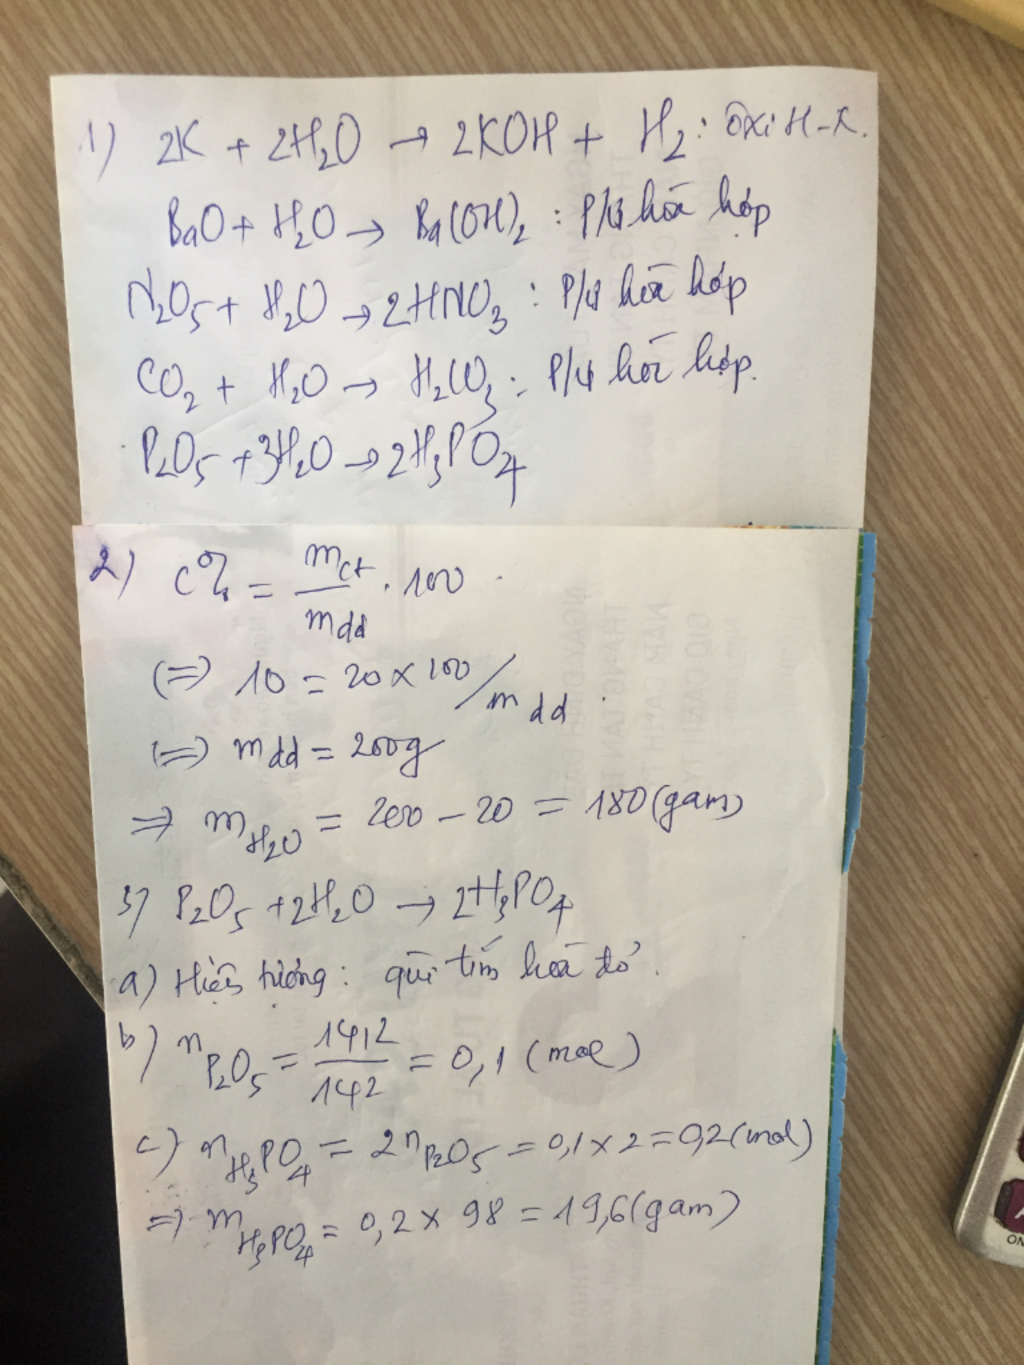 1) 2K + 2H₂O → 2KOH + H₂ : Oxi H-K.
BaO + H₂O → Ba(OH)₂ : P/ứ hoá hợp
N₂O₅ + H₂O → 2HNO₃ : P/ứ hoá hợp
CO₂ + H₂O → H₂CO₃ : P/ứ hoá hợp.
P₂O₅ + 3H₂O → 2H₃PO₄
2) C% = mct/mdd . 100
(=) 10 = 20 x 100/mdd.
(=) mdd = 200g
=) mH₂O = 200 - 20 = 180 (gam)
3) P₂O₅ + 2H₂O → 2H₃PO₄
a) Hiện tượng: quì tím hoá đỏ.
b) nP₂O₅ = 14,2/142 = 0,1 (mol)
c) nH₃PO₄ = 2nP₂O₅ = 0,1 x 2 = 0,2 (mol)
=) mH₃PO₄ = 0,2 x 98 = 19,6 (gam)
ON